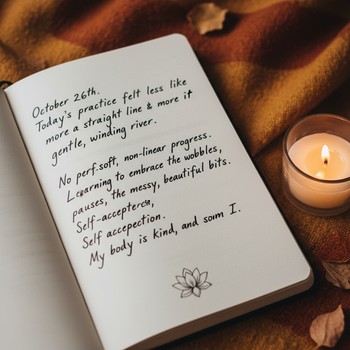 October 26th.
Today's practice felt less like
more a straight line & more it
gentle, winding river.
No perf.soft, non-linear progress.
Learning to embrace the wobbles,
pauses, the messy, beautiful bits.
Self-acceptercə,
Self accepection.
My body is kind, and soım I.